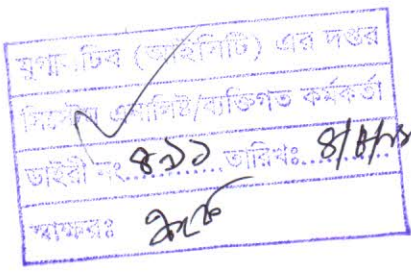 যুগ্মসচিব (আইসিটি) এর দপ্তর
সিস্টেম এনালিষ্ট/ব্যক্তিগত কর্মকর্তা
ডাইরী নং ৪৯১ তারিখঃ
স্বাক্ষরঃ